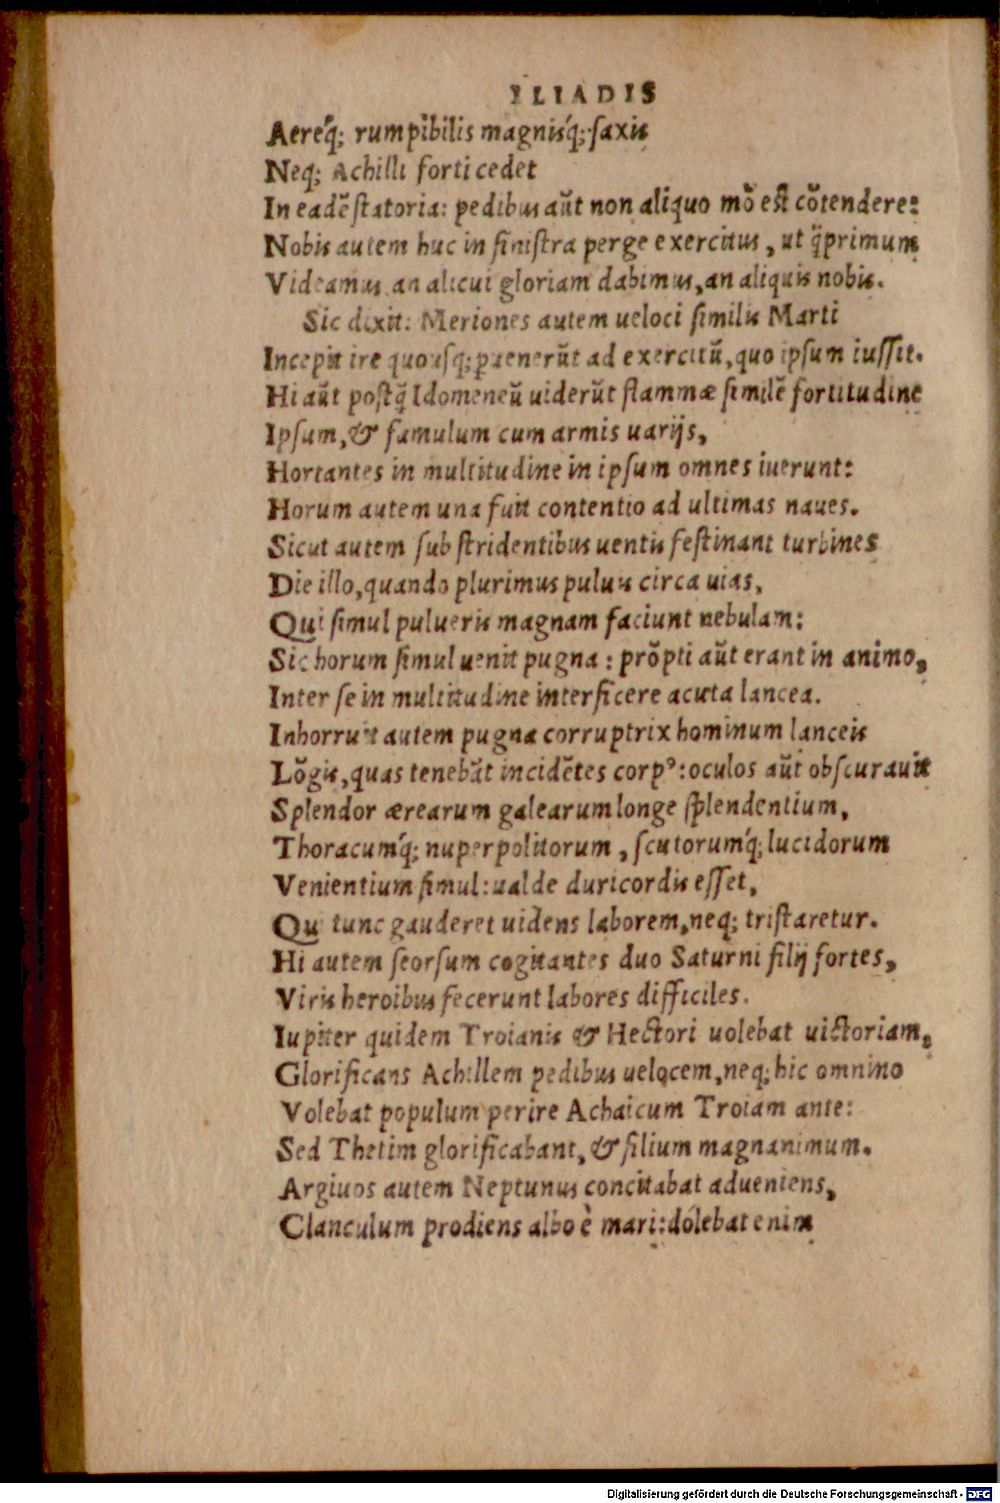 ILIADIS
Aereq́; rumpibilis magnisq́; saxis
Neq; Achilli forti cedet
In eadē statoria: pedibus aūt non aliquo mō est cōtendere:
Nobis autem huc in sinistra perge exercitus, ut q̃primum
Videamus an alicui gloriam dabimus, an aliquis nobis.
Sic dixit: Meriones autem ueloci similis Marti
Incepit ire quousq; puenerūt ad exercitū, quo ipsum iussit.
Hi aūt postq̃ Idomeneū uiderūt flammæ similē fortitudine
Ipsum, & famulum cum armis uarijs,
Hortantes in multitudine in ipsum omnes iuerunt:
Horum autem una fuit contentio ad ultimas naues.
Sicut autem sub stridentibus uentis festinant turbines
Die illo, quando plurimus puluis circa uias,
Qui simul pulueris magnam faciunt nebulam:
Sic horum simul uenit pugna: prōpti aūt erant in animo,
Inter se in multitudine interficere acuta lancea.
Inhorruit autem pugna corruptrix hominum lanceis
Lōgis, quas tenebāt incidētes corpꝰ: oculos aūt obscurauit
Splendor ærearum galearum longe splendentium,
Thoracumq́; nuper politorum, scutorumq́; lucidorum
Venientium simul: ualde duricordis esset,
Qui tunc gauderet uidens laborem, neq; tristaretur.
Hi autem seorsum cogitantes duo Saturni filij fortes,
Viris heroibus fecerunt labores difficiles.
Iupiter quidem Troianis & Hectori uolebat uictoriam,
Glorificans Achillem pedibus uelocem, neq; hic omnino
Volebat populum perire Achaicum Troiam ante:
Sed Thetim glorificabant, & filium magnanimum.
Argiuos autem Neptunus concitabat adueniens,
Clanculum prodiens albo è mari: dolebat enim
Digitalisierung gefördert durch die Deutsche Forschungsgemeinschaft - DFG